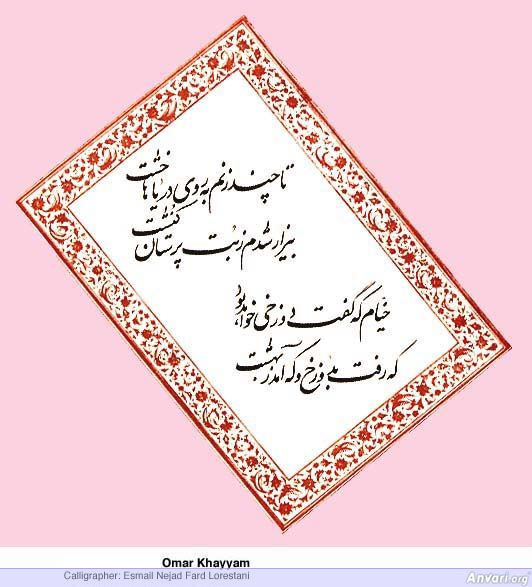 تا چند زنم به روی دریاها خشت
بیزار شدم ز بت پرستان کنشت
خیام که گفت دوزخی خواهد بود
که رفت بدوزخ و که آمد ز بهشت
Omar Khayyam
Calligrapher: Esmail Nejad Fard Lorestani
Anvari.org